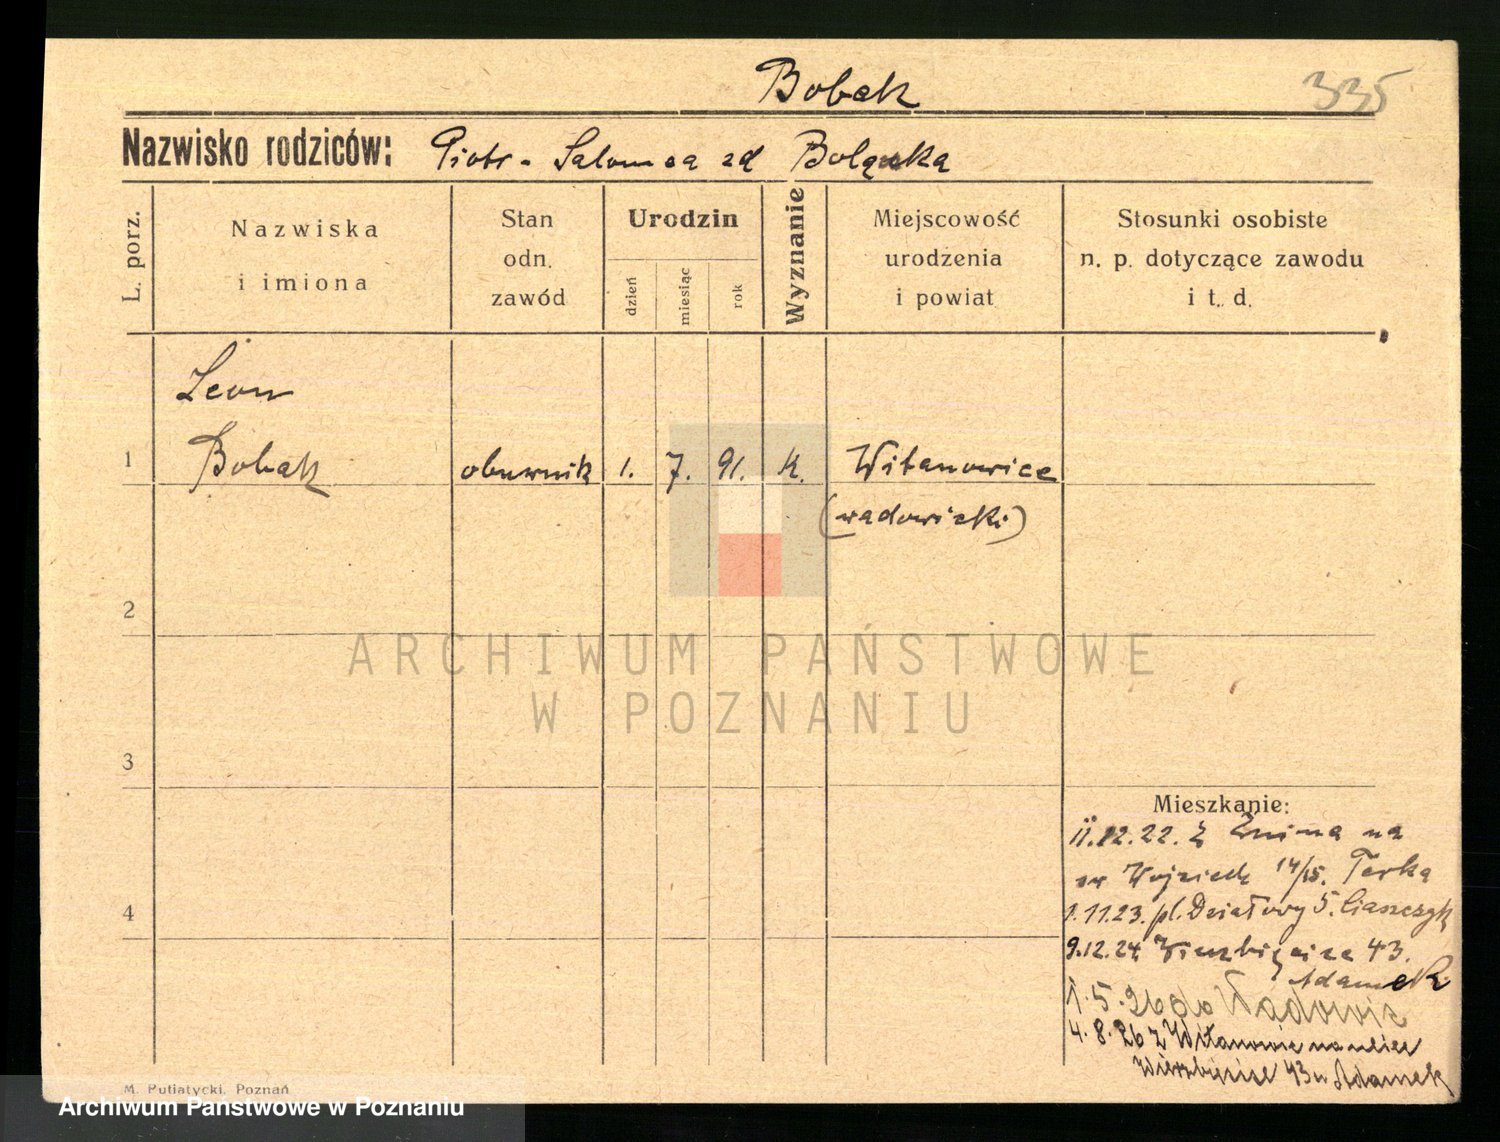 Bobak
335
Nazwisko rodziców: Piotr - Salomea zd
L. porz.
Nazwiska
i imiona
Stan
odn.
zawód
Urodzin
dzień
miesiąc
rok
Wyznanie
Miejscowość
urodzenia
i powiat
Stosunki osobiste
n. p. dotyczące zawodu
i t. d.
Leon
1 Bobak obuwnik 1. 7. 91. K. Witanowice
(wadowicki)
2
ARCHIWUM PAŃSTWOWE
W POZNANIU
3
Mieszkanie:
11.12.22. z Żnina na
św Wojciech 14/15. Terka
4
1.11.23. pl. Działowy 5. Ciaszczyk
9.12.24 Wierzbięcice 43.
Adamek
1.5.26 do Wadowic
4.8.26 z Witanowic na ulice
Wierzbięcice 43 u Adamek
M. Putiatycki, Poznań
Archiwum Państwowe w Poznaniu